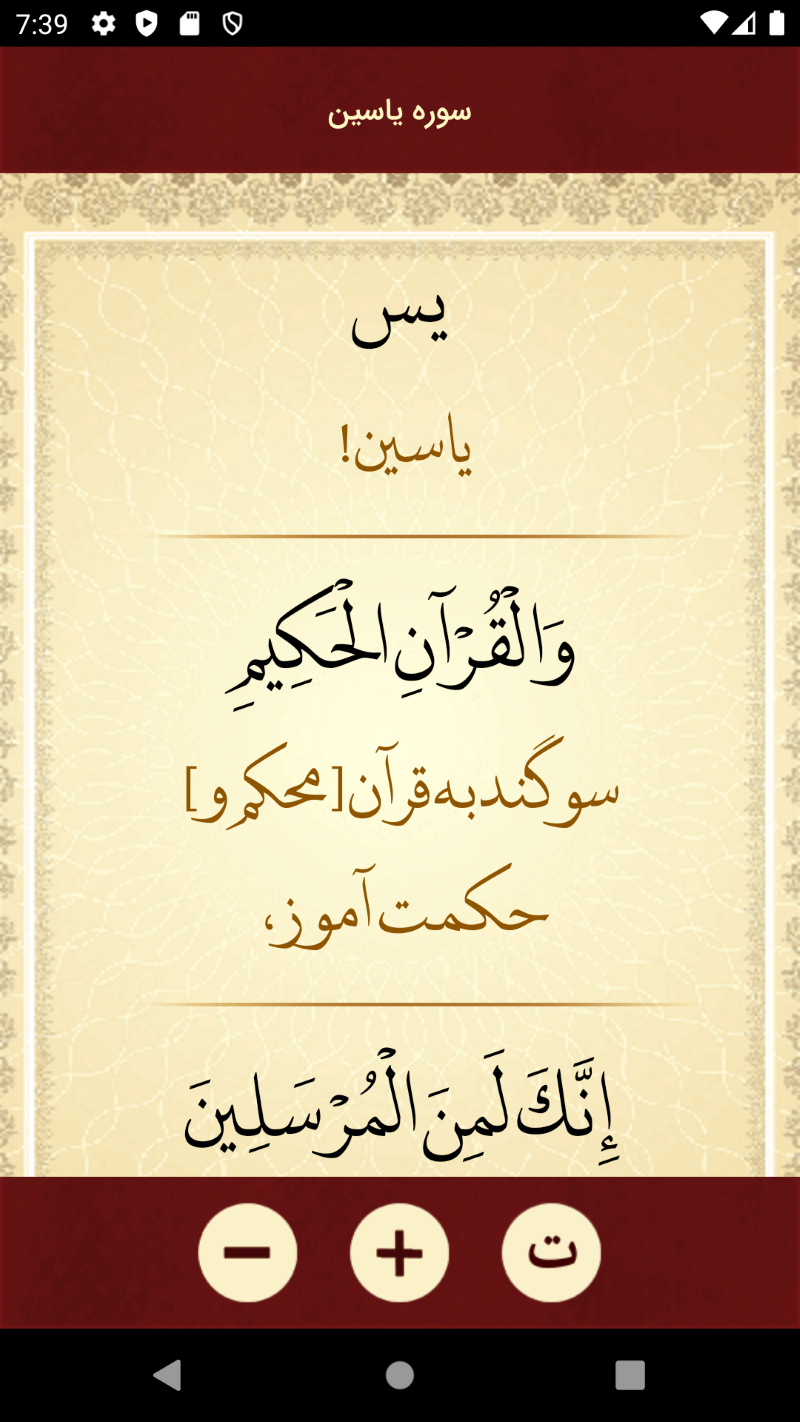 7:39
سوره یاسین
يس
یاسین!
وَالْقُرْآنِ الْحَكِيمِ
سوگند به قرآن [محکم و]
حکمت آموز،
إِنَّكَ لَمِنَ الْمُرْسَلِينَ
− + ت